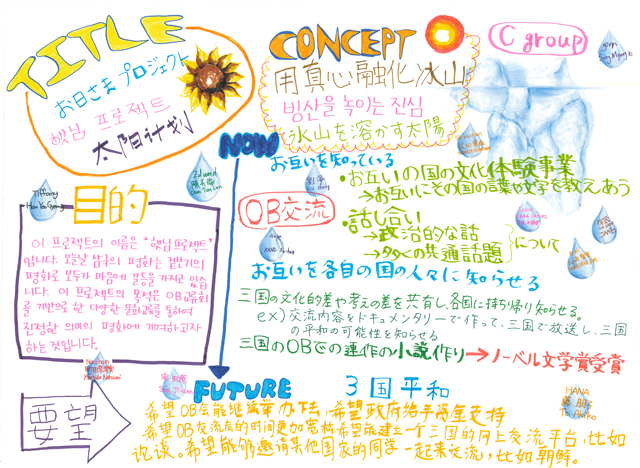 TITLE
お日さまプロジェクト
햇님 프로젝트
太阳计划
CONCEPT
用真心融化冰山
빙산을 녹이는 진심
氷山を溶かす太陽
C group
NOW
お互いを知っている
・お互いの国の文化体験事業
→お互いにその国の言葉や文字を教えあう
OB交流
・話し合い
→政治的な話
→多くの共通話題
について
お互いを各自の国の人々に知らせる
Tiffany
Edward
目的
이 프로젝트의 이름은 '햇님 프로젝트'
입니다. 오늘날 삼국의 평화는 겉보기의
평화로 모두가 마음에 갈등을 가지고 있습
니다. 이 프로젝트의 목적은 OB교류회
를 기반으로 한 다양한 문화교류를 통하여
진정한 의미의 평화에 기여하고자
하는 것입니다.
三国の文化的差や考えの差を共有し、各国に持ち帰り知らせる。
ex)交流内容をドキュメンタリーで作って、三国で放送し、三国
の平和の可能性を知らせる
三国のOBでの連作の小説作り→ノーベル文学賞受賞
FUTURE
3国平和
HANA
要望
希望OB会能继续举办下去,希望政府给予资金支持
希望OB交流会的时间更加宽裕希望能建立一个三国的网上交流平台,比如
论谈。希望能够邀请其他国家的同学一起来交流,比如朝鲜。